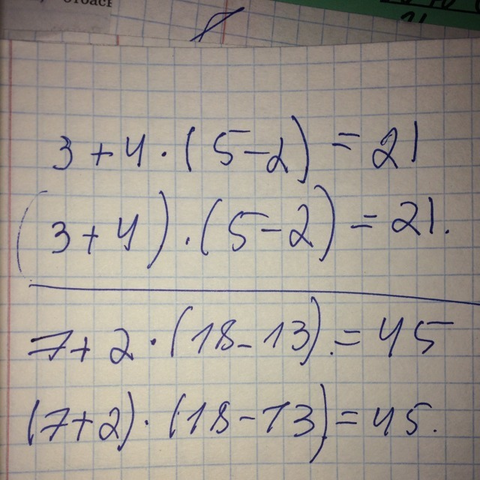 3 + 4 · (5 - 2) = 21
(3 + 4) · (5 - 2) = 21.
7 + 2 · (18 - 13) = 45
(7 + 2) · (18 - 13) = 45.